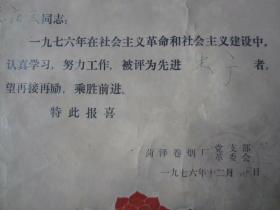 同志：
一九七六年在社会主义革命和社会主义建设中，
认真学习，努力工作，被评为先进 者，
望再接再励，乘胜前进。
特此报喜
菏泽卷烟厂 党支部
革委会
一九七六年十二月 日